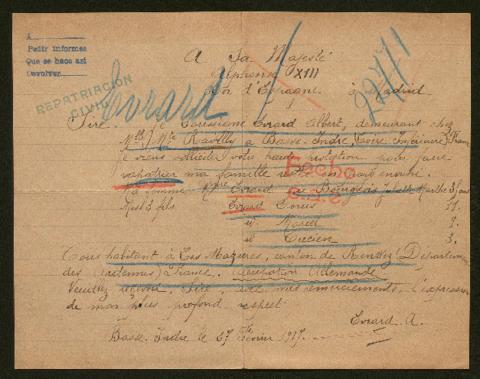 A
Pedir informes
Que se haga así
Devolver
REPATRIACIÓN
CIVIL
Evrard
A Sa Majesté
Alphonse XIII
Roi d'Espagne à Madrid
Sire. Je Soussigné Evrard Albert, demeurant chez
à Basse-Indre, (Loire Inférieure) France
Je viens solliciter votre haute
rapatrier ma famille
Ma femme Mme Evrard née Bourgeois Marthe 31 ans
Mes 3 fils Evrard
id. Marcel
id. Lucien 3.
Hecho
Tous habitant à Les Mazures, canton de Renwez (Département
des Ardennes) France. Occupation Allemande
Veuillez agréer, Sire, avec mes remerciements, l'expression
de mon plus profond respect
Evrard A.
Basse-Indre le 27 Février 1917.